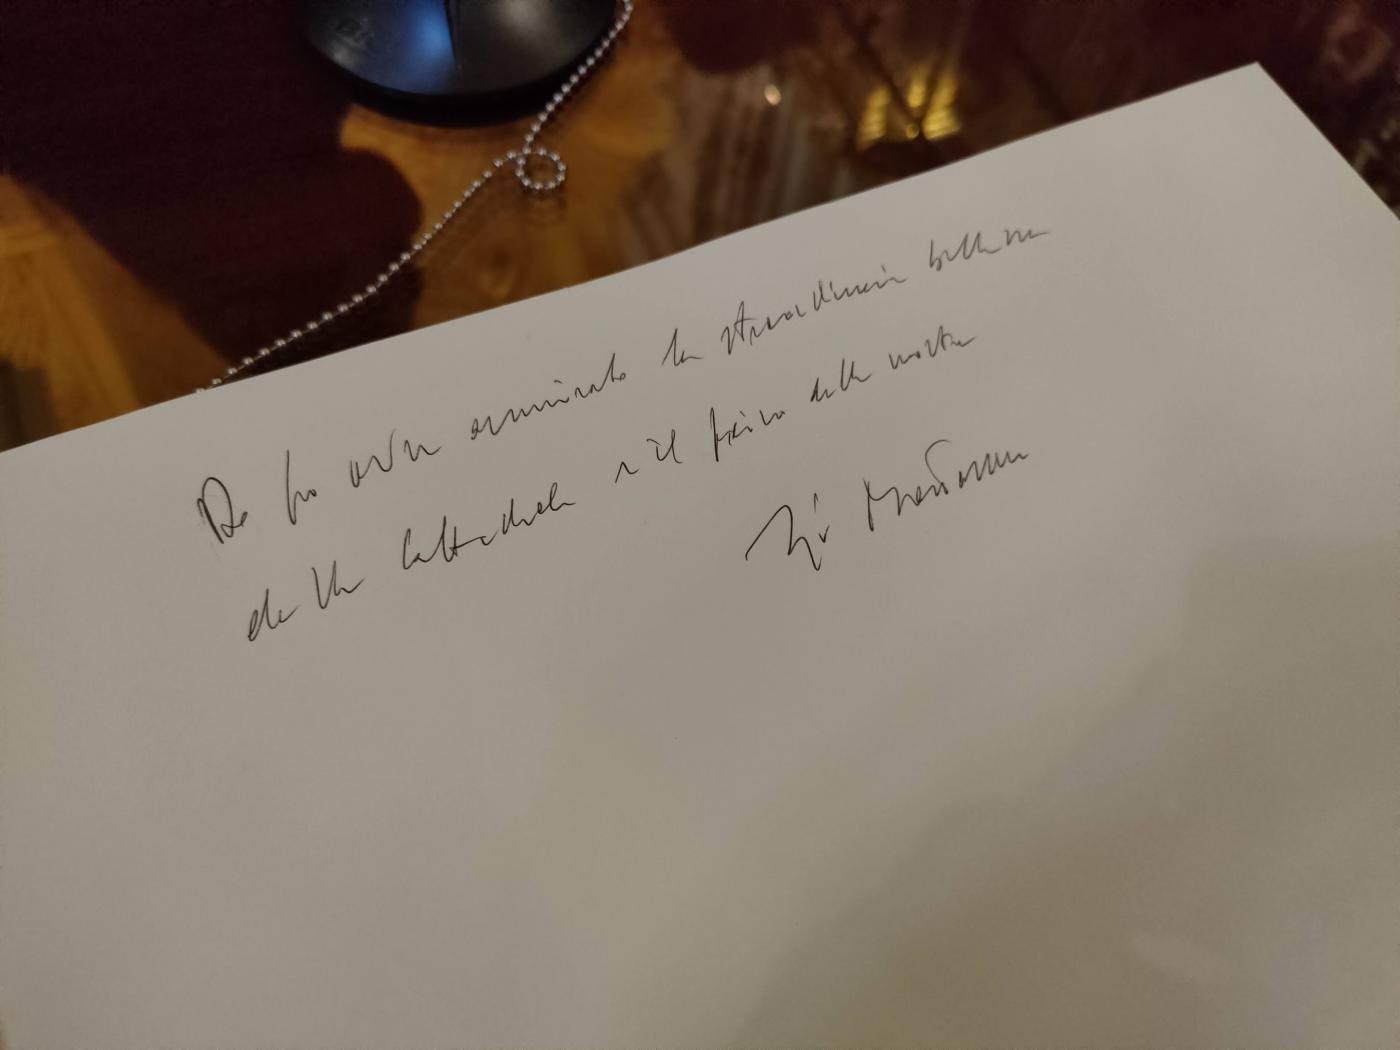 Do po aver ammirato la straordinaria bellezza
della Cattedrale e il fascino della mostra